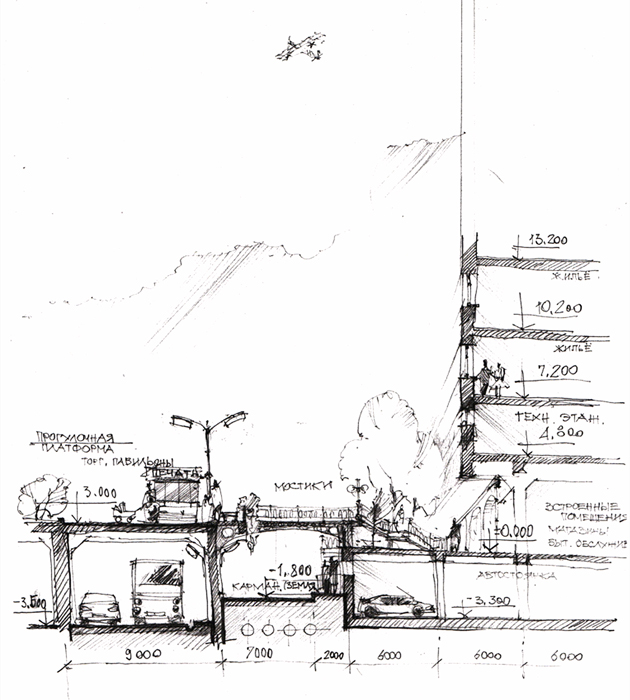 13.200
ЖИЛЬЁ
10,200
ЖИЛЬЁ
7,200
ТЕХН. ЭТАЖ.
4.800
ПРОГУЛОЧНАЯ
ПЛАТФОРМА
ТОРГ. ПАВИЛЬОНЫ
ПЕЧАТЬ
3.000
МОСТИКИ
ВСТРОЕННЫЕ
ПОМЕЩЕНИЯ
МАГАЗИНЫ
БЫТ. ОБСЛУЖИВ
±0.000
-1,800
КАРМАН
АВТОСТОЯНКА
-3.500
-3,300
9000
7000
2000
6000
6000
6000